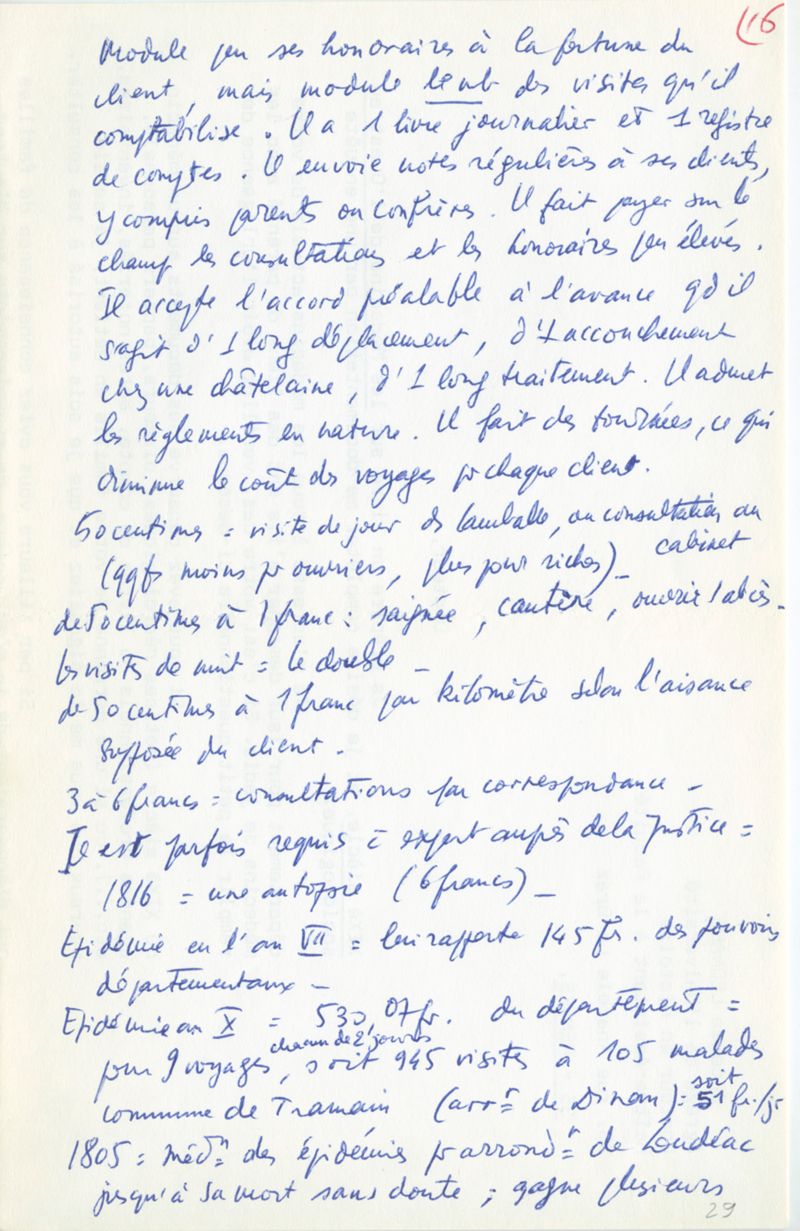 16
Module peu ses honoraires à la fortune du
client, mais module le nb des visites qu'il
comptabilise. Il a 1 livre journalier et 1 registre
de comptes. Il envoie notes régulières à ses clients,
y compris parents ou confrères. Il fait payer sur le
champ les consultations et les honoraires peu élevés.
Il accepte l'accord préalable à l'avance qd il
s'agit d'1 long déplacement, d'1 accouchement
chez une châtelaine, d'1 long traitement. Il admet
les règlements en nature. Il fait des tournées, ce qui
diminue le coût des voyages pr chaque client.
50 centimes = visite de jour ds Lamballe, ou consultation au
cabinet
(qqfs moins pr ouvriers, plus pour riches) _
de 50 centimes à 1 franc : saignée, cautère, ouvrir 1 abcès -
les visites de nuit = le double -
de 50 centimes à 1 franc par kilomètre selon l'aisance
supposée du client.
3 à 6 francs = consultations par correspondance -
Il est parfois requis c̄ expert auprès de la Justice =
1816 = une autopsie (6 francs) _
Epidémie en l'an VII = lui rapporte 145 fr. des pouvoirs
départementaux -
Epidémie an X = 530,07 fr. du département =
pour 9 voyages chacun de 2 jours, soit 945 visites à 105 malades
commune de Tramain (arrt de Dinan) = soit 51 fr./jr
1805 = médn des épidémies pr arrondt de Loudéac
jusqu'à sa mort sans doute ; gagne plusieurs
29